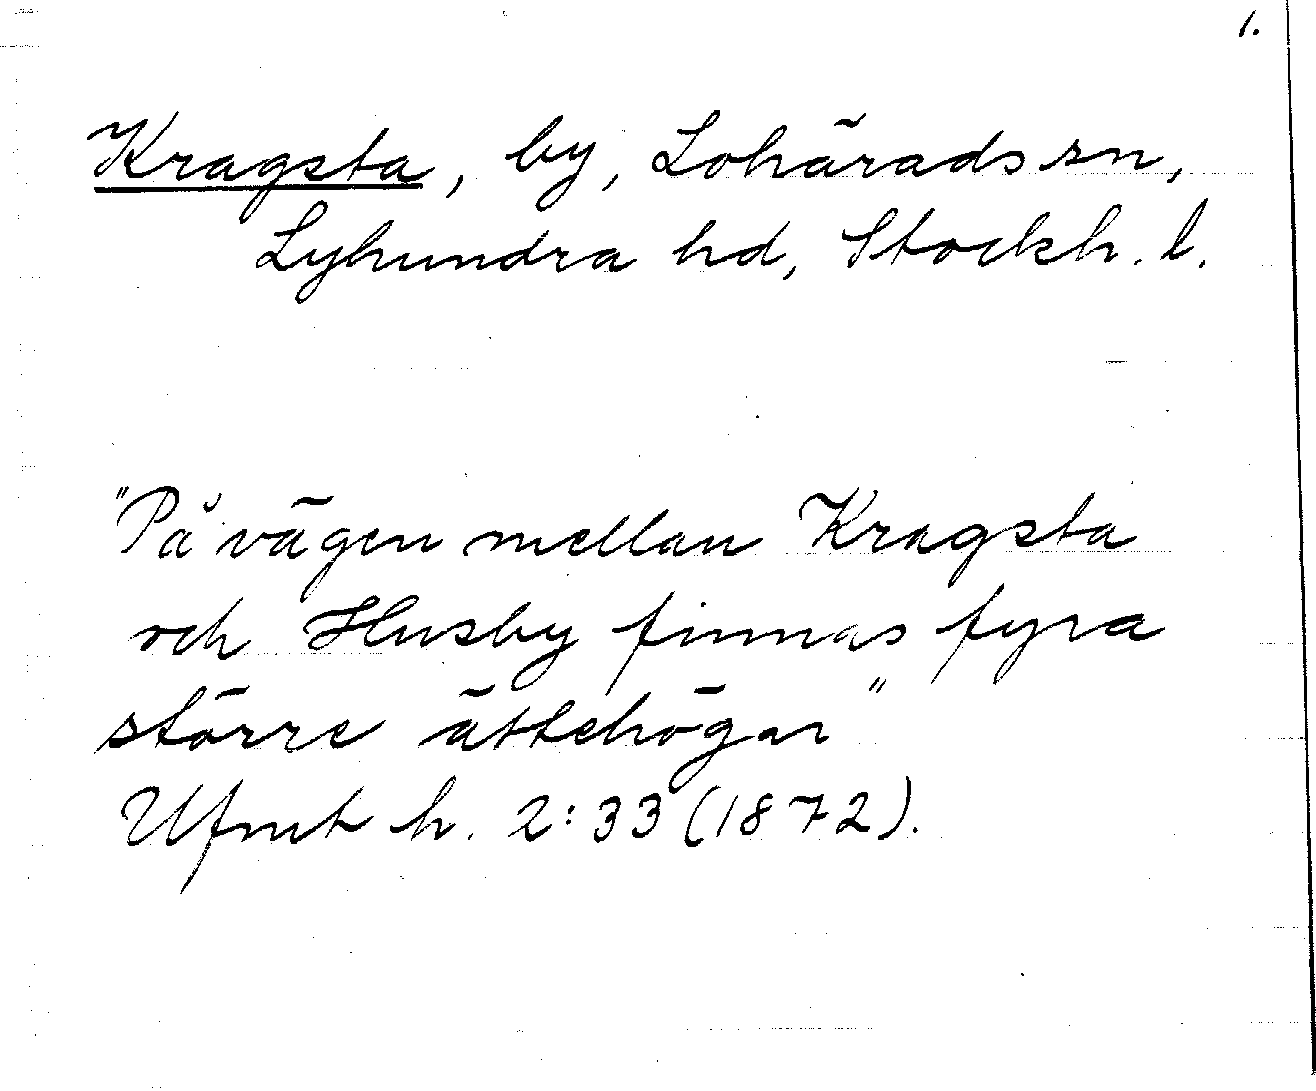 1.
Kragsta, by, Lohärads sn,
Lyhundra hd, Stockh. l.
"På vägen mellan Kragsta
och Husby finnas fyra
större ättehögar"
Ufmt h. 2:33 (1872).